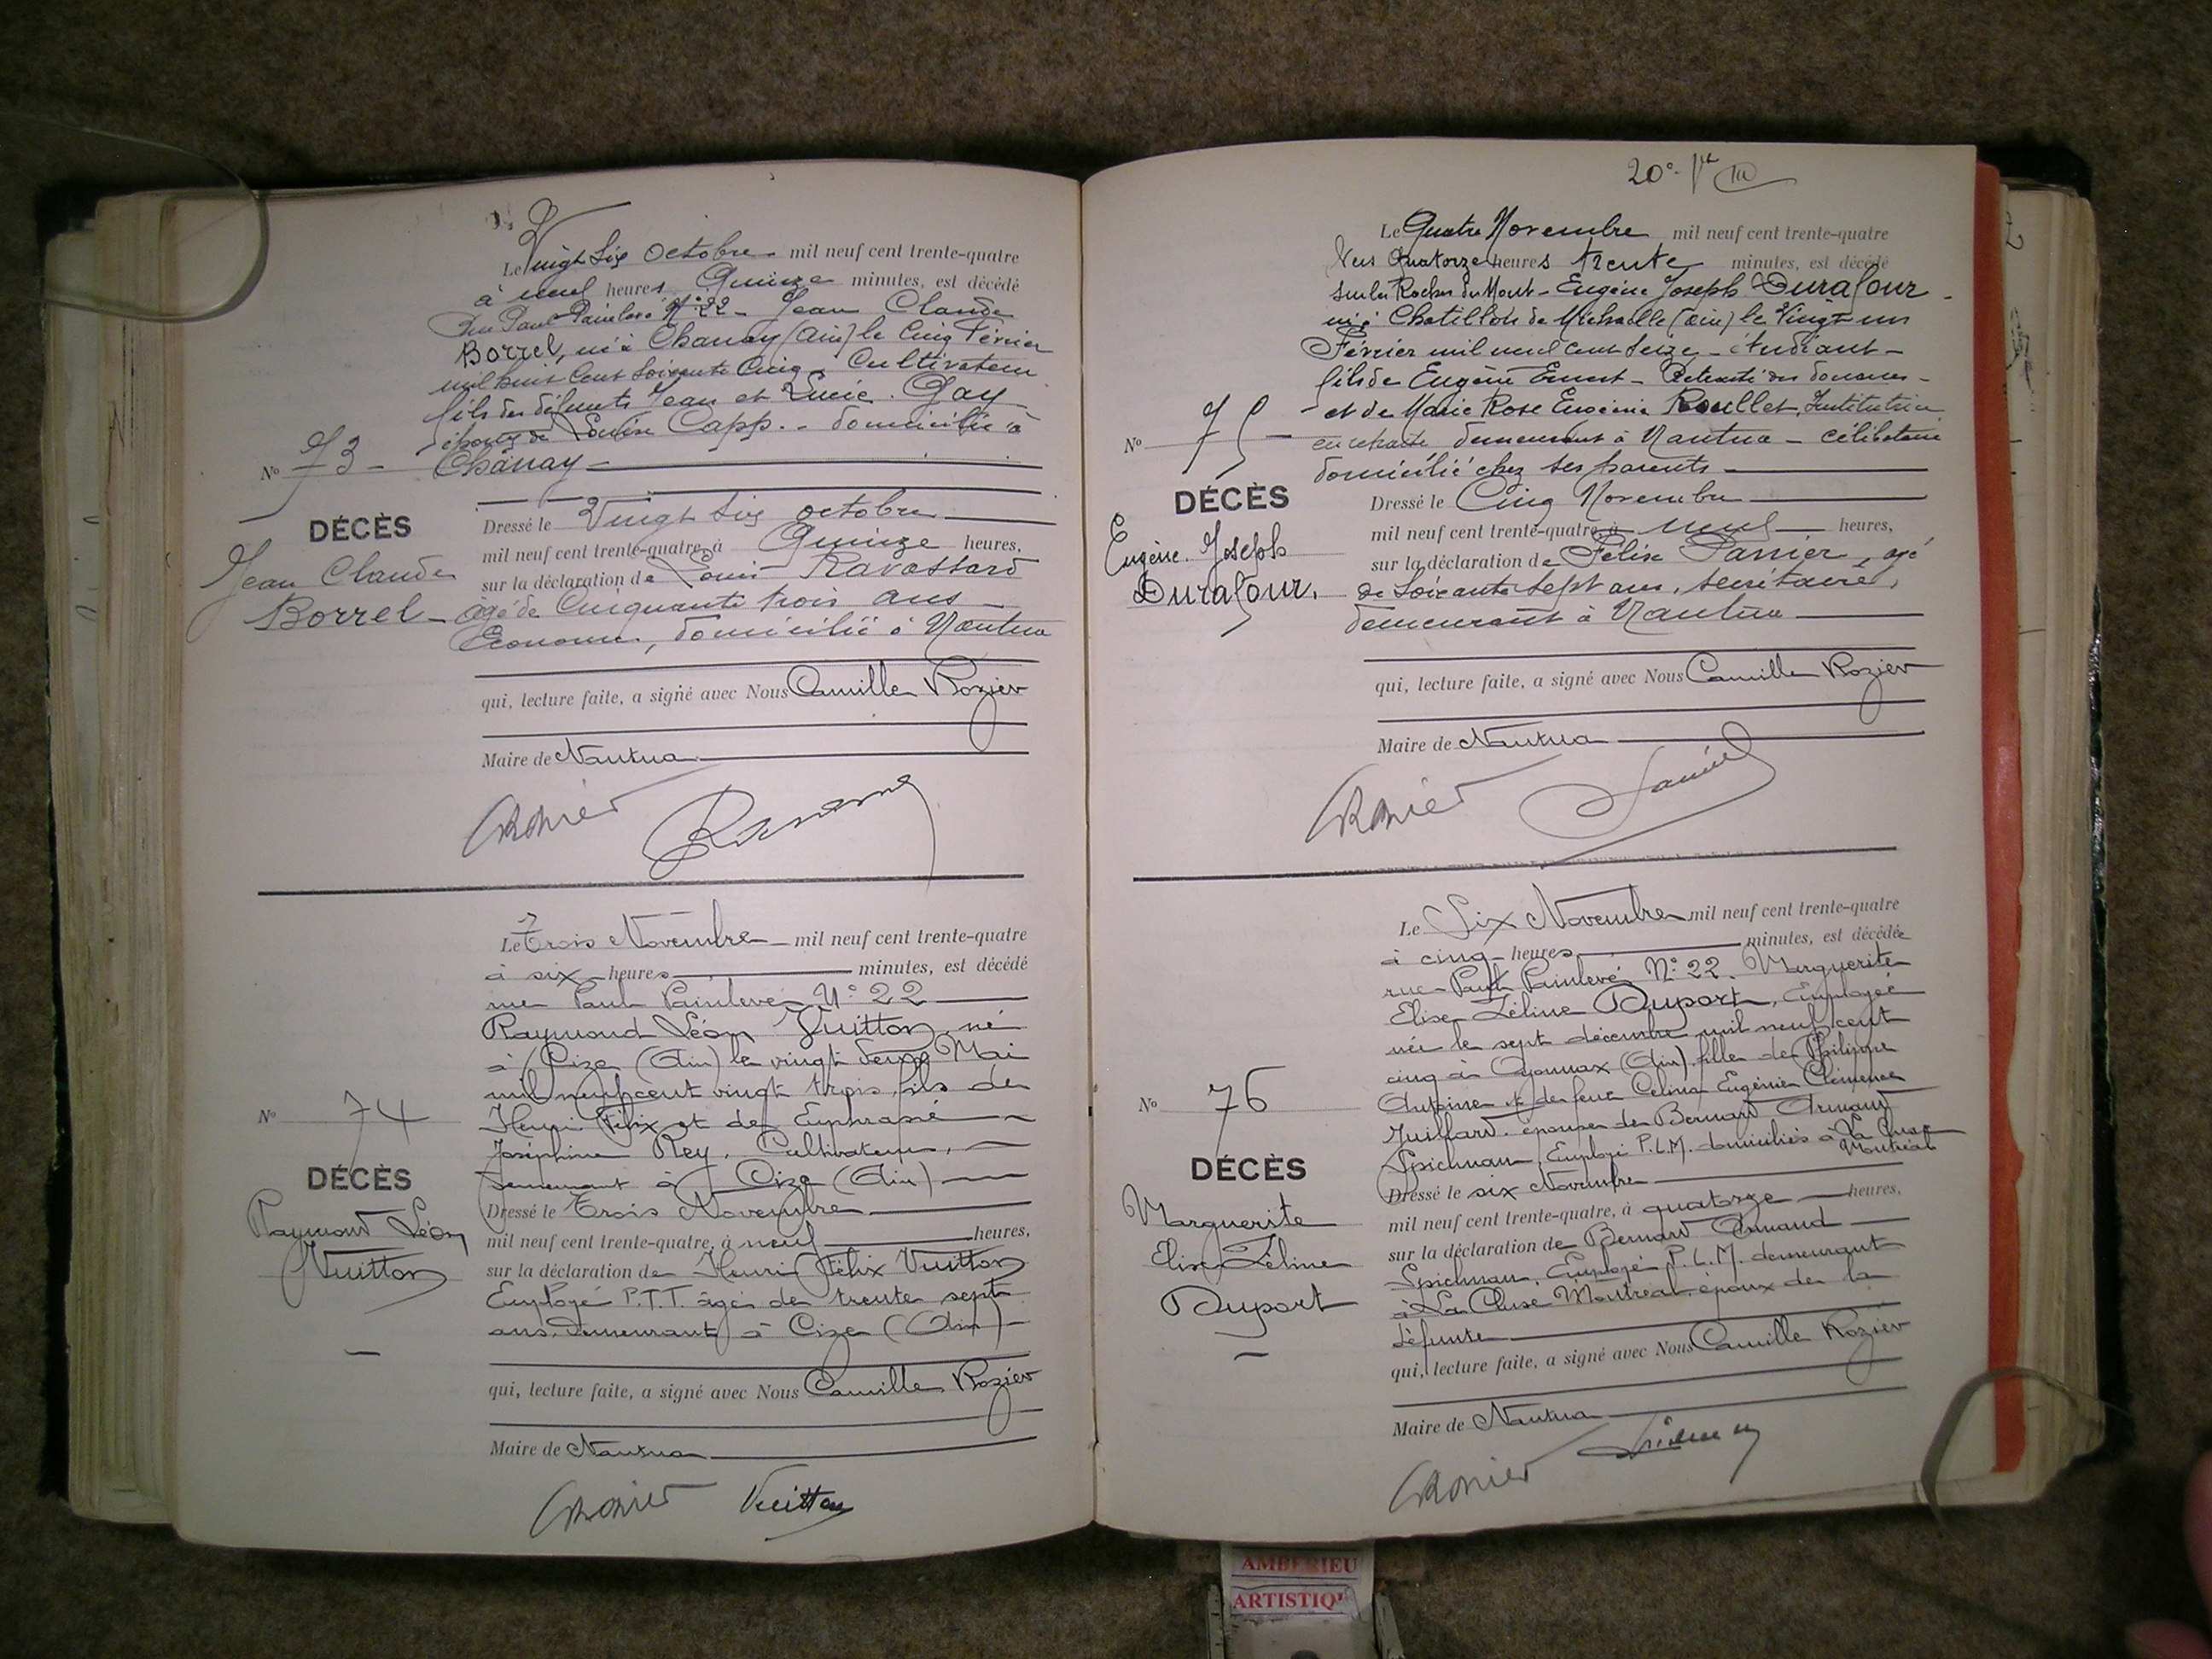 Le Vingt Six Octobre mil neuf cent trente-quatre
à neuf heures Quinze minutes, est décédé
Rue Paul Painlevé N° 22 - Jean Claude
Borrel, né à Chanay (Ain) le Cinq Février
mil huit cent soixante cinq - Cultivateur
fils des défunts Jean et Lucie Gay
époux de Louise Capp - domicilié à
Chanay -
N° 73 -
DÉCÈS
Jean Claude
Borrel -
Dressé le Vingt Six octobre
mil neuf cent trente-quatre, à Quinze heures,
sur la déclaration de Louis Ravassard
âgé de Cinquante trois ans -
Econome, domicilié à Nantua
qui, lecture faite, a signé avec Nous Camille Rozier
Maire de Nantua
CRozier
Le Trois Novembre mil neuf cent trente-quatre
à six heures minutes, est décédé
rue Paul Painlevé N° 22
Raymond Léon Vuitton, né
à Cize (Ain) le vingt deux Mai
mil neuf cent vingt trois, fils de
Henri Félix et de Euphrasie
Joséphine Rey, Cultivateurs,
demeurant à Cize (Ain)
N° 74
DÉCÈS
Raymond Léon
Vuitton
Dressé le Trois Novembre
mil neuf cent trente-quatre, à neuf heures,
sur la déclaration de Henri Félix Vuitton
Employé P.T.T. âgé de trente sept
ans, demeurant à Cize (Ain) -
qui, lecture faite, a signé avec Nous Camille Rozier
Maire de Nantua
CRozier Vuitton
20e
Le Quatre Novembre mil neuf cent trente-quatre
Vers Quatorze heures trente minutes, est décédé
sur les Roches du Mont - Eugène Joseph Durafour -
né à Chatillon de Michaille (Ain) le Vingt un
Février mil neuf cent seize - étudiant -
fils de Eugène Ernest - Retraité des douanes -
- et de Marie Rose Eugénie Roullet, Institutrice
en retraite demeurant à Nantua - célibataire
domicilié chez ses parents
N° 75 -
DÉCÈS
Eugène Joseph
Durafour.
Dressé le Cinq Novembre
mil neuf cent trente-quatre, à neuf heures,
sur la déclaration de Félix Parrier, âgé
de Soixante Sept ans, secrétaire,
demeurant à Nantua
qui, lecture faite, a signé avec Nous Camille Rozier
Maire de Nantua
CRozier
Le Six Novembre mil neuf cent trente-quatre
à cinq heures minutes, est décédée
rue Paul Painlevé N° 22. Marguerite
Elise Zéline Duport, Employée
née le sept décembre mil neuf cent
cinq à Oyonnax (Ain), fille de Philippe
Antoine et de feue Celina Eugénie Clémence
Juillard. épouse de Bernard Armand
Spichman, Employé P.L.M. domiciliés à La Cluse
Montréal
N° 76
DÉCÈS
Marguerite
Elise Zéline
Duport
Dressé le six Novembre
mil neuf cent trente-quatre, à quatorze heures,
sur la déclaration de Bernard Armand
Spichman, Employé P.L.M. demeurant
à La Cluse Montréal, époux de la
défunte
qui, lecture faite, a signé avec Nous Camille Rozier
Maire de Nantua
CRozier
AMBERIEU
ARTISTIQ